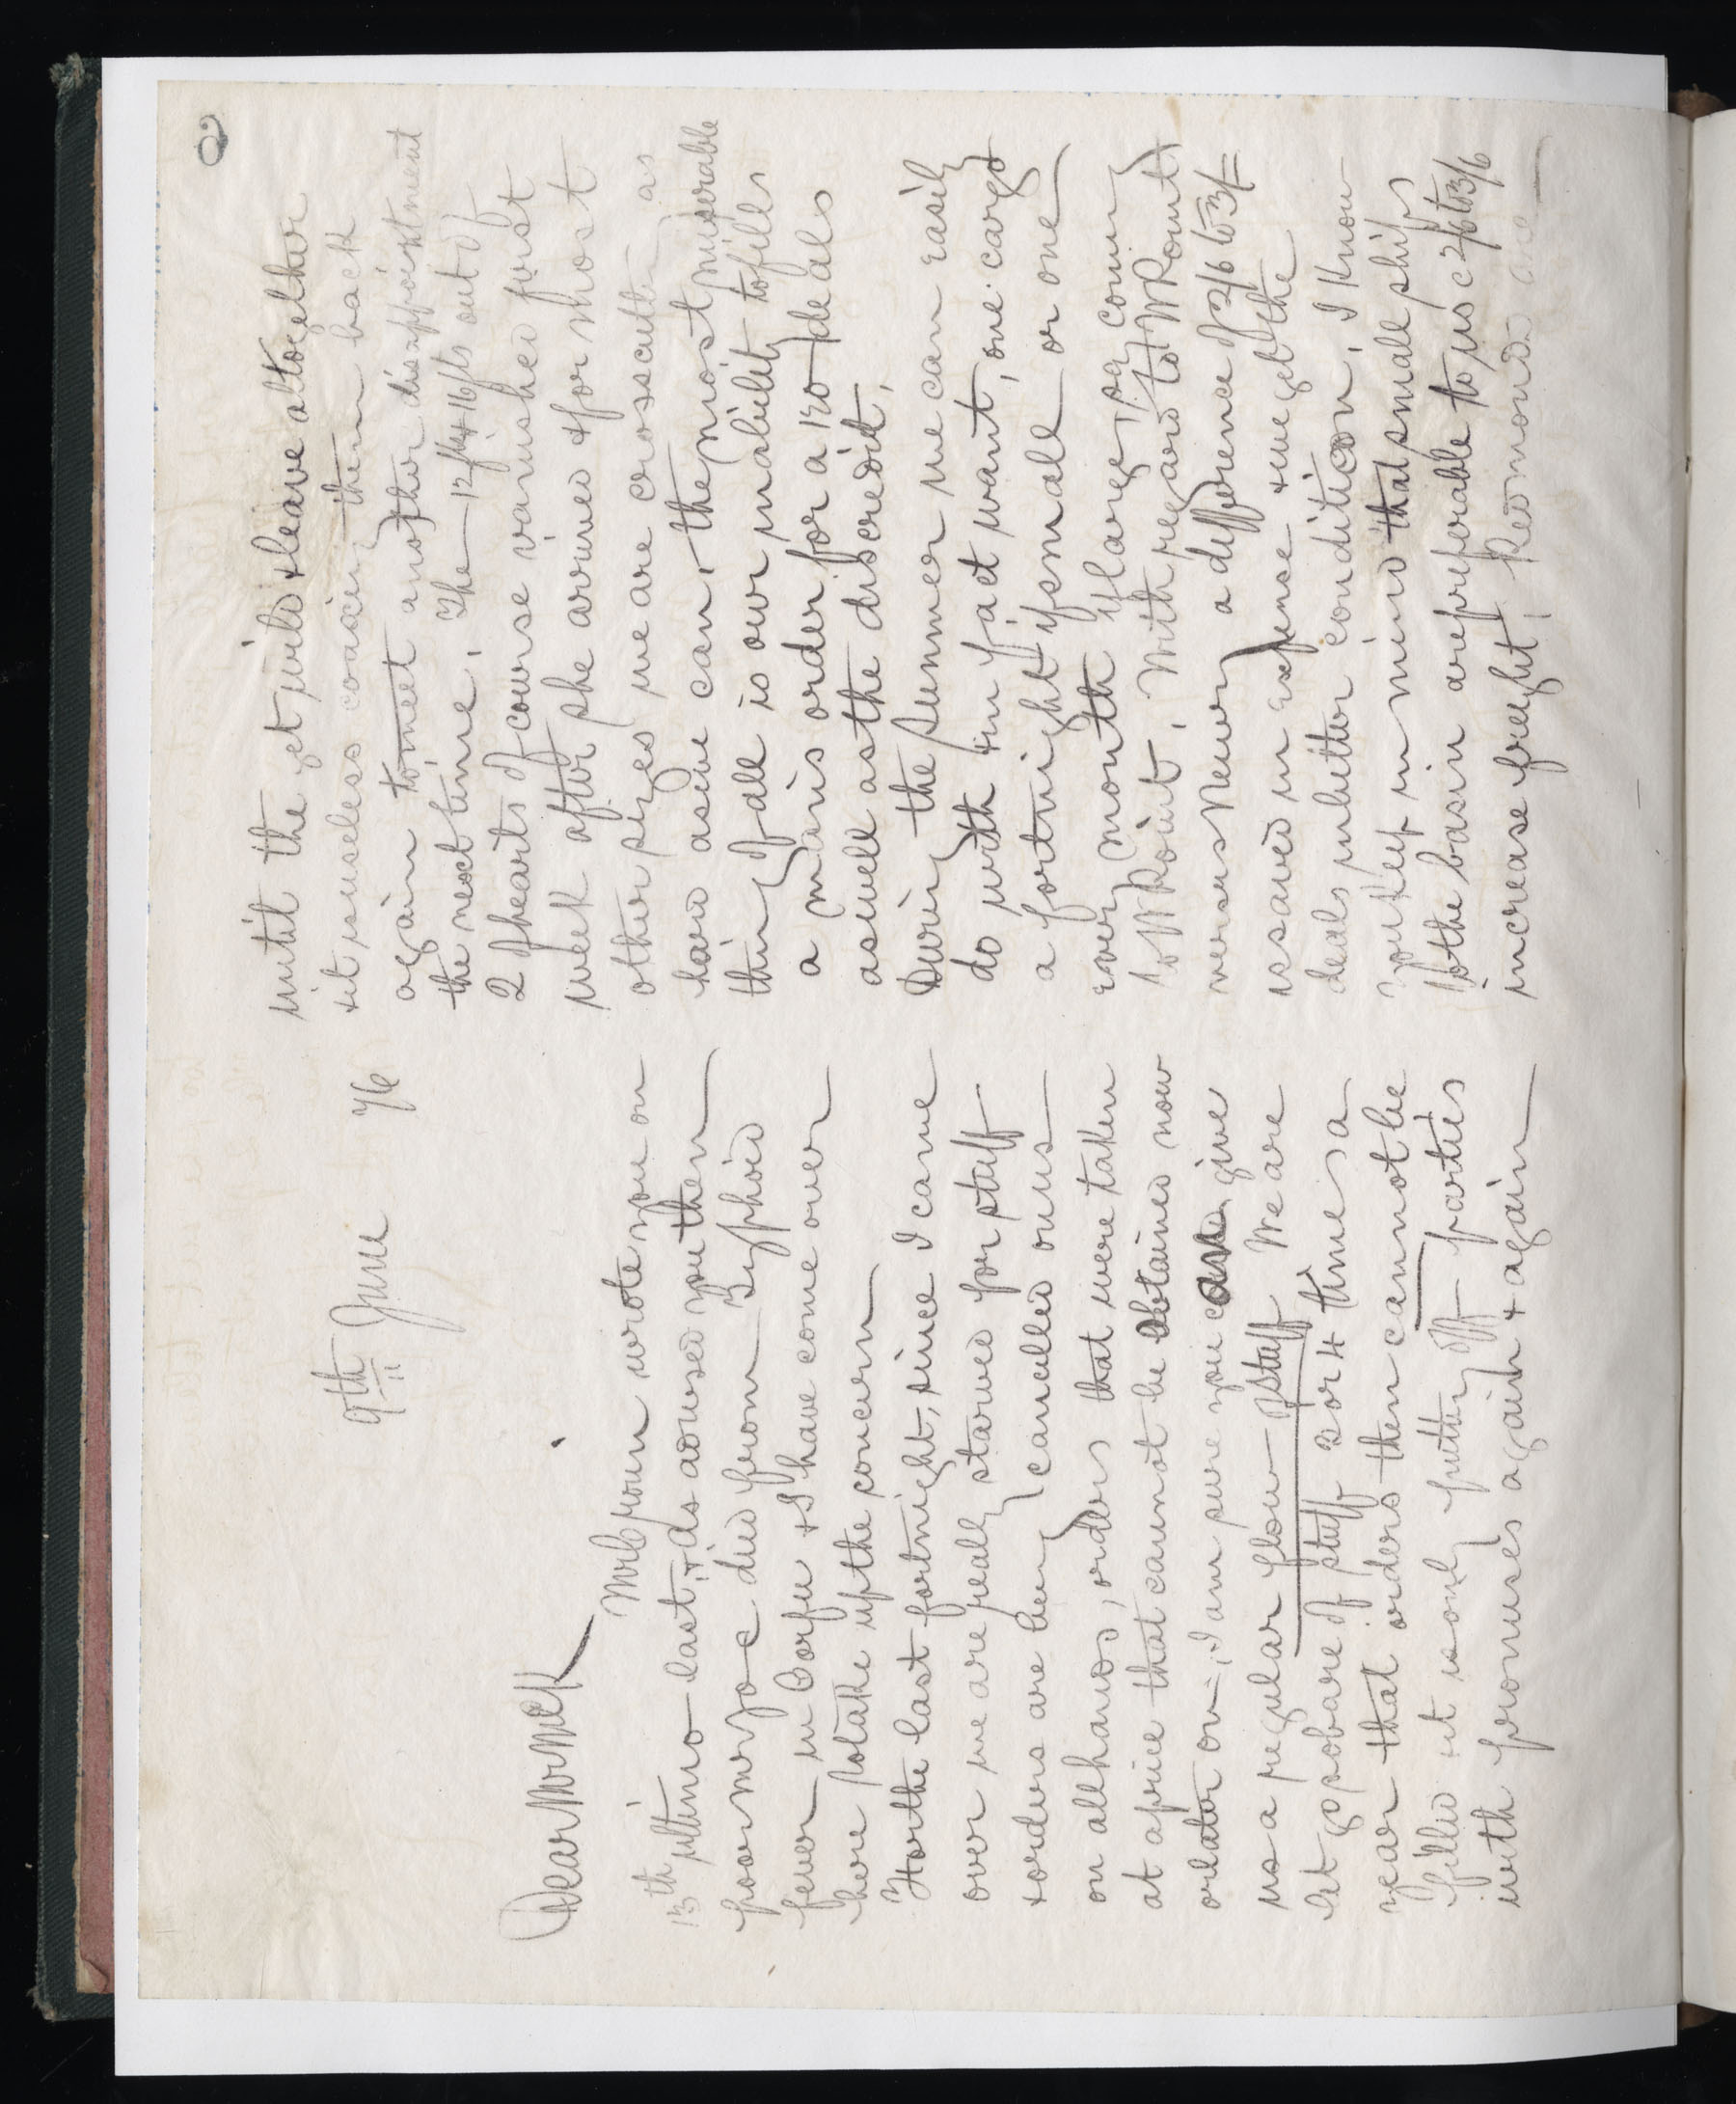 9th June 76
Dear Mr McK
Mr Brown wrote you on
13th ultimo last, & as advised you then
poor Mr Joe died from Typhoid
fever in Corfu & I have come over
here to take up the concern
For the last fortnight, since I came
over we are really starved for stuff
& orders are being cancelled ours
on all hands, orders that were taken
at a price that cannot be obtained now
or later on, I am sure you can give
us a regular flow of stuff We are
let go so bare of stuff 3 or 4 times a
year that orders then cannot be
filled & it is only putting off parties
with promises again & again
until the get wild & leave altogether
& it is useless coaxing them back
again to meet another disappointment
the next time. The 12 ft 14 & 16 fts out of
2 of hearts of course vanished first
week after she arrived & for most
other sizes we are crosscutting as
hard as we can, the most miserable
thing of all is our inability to fill
a man's order for a 120 deals
as well as the discredit.
During the summer we can easily
do with & in fact want, one cargo
a fortnight if small or one
every month if large, per coming
to W Point. With regard to W Point
versus Newry a difference of 2/6 to 3/=
is saved in expense & we get the
deals in better condition, I know
you keep in mind that small ships
to the basin are preferable to us @ 2/6 to 3/6
increase freight. Redmond are